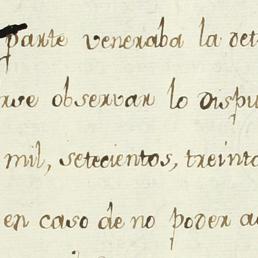 parte veneraba la det
rse observar lo dispu
mil, setecientos, treinta
en caso de no poder a